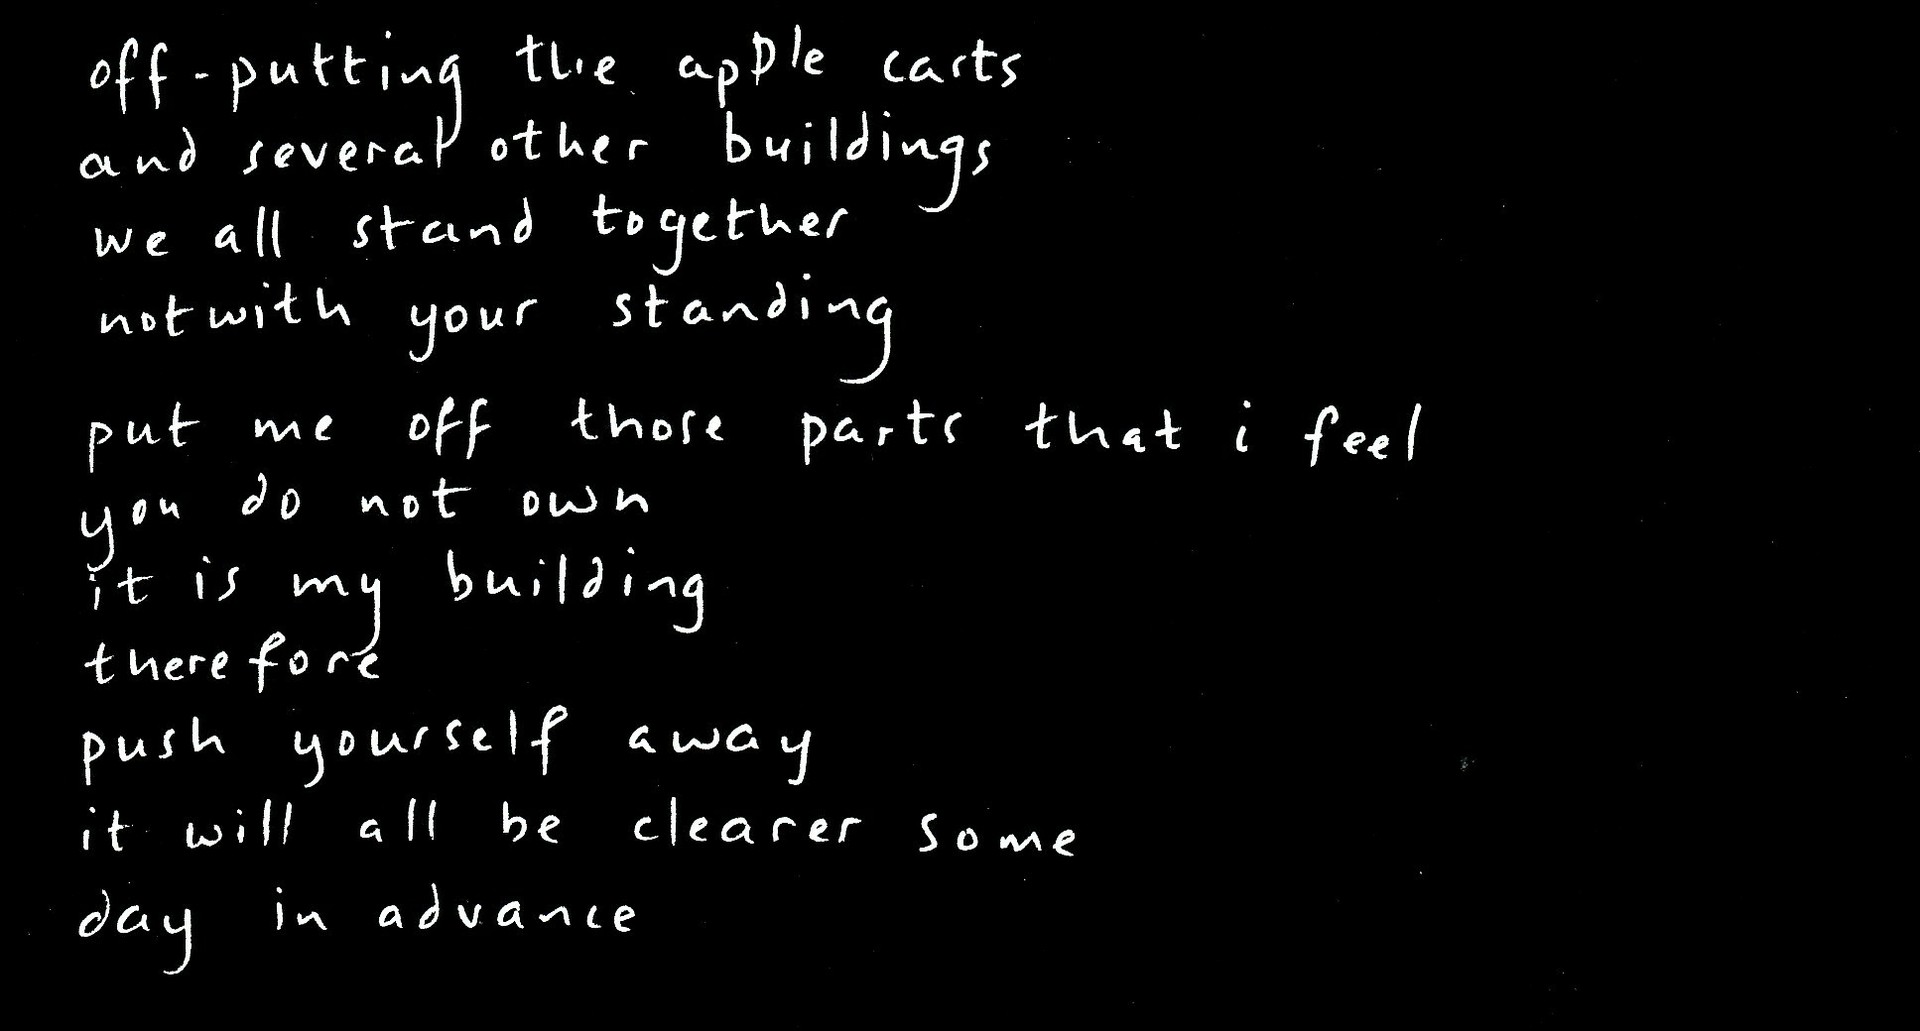 off-putting the apple carts
and several other buildings
we all stand together
notwith your standing
put me off those parts that i feel
you do not own
it is my building
therefore
push yourself away
it will all be clearer some
day in advance